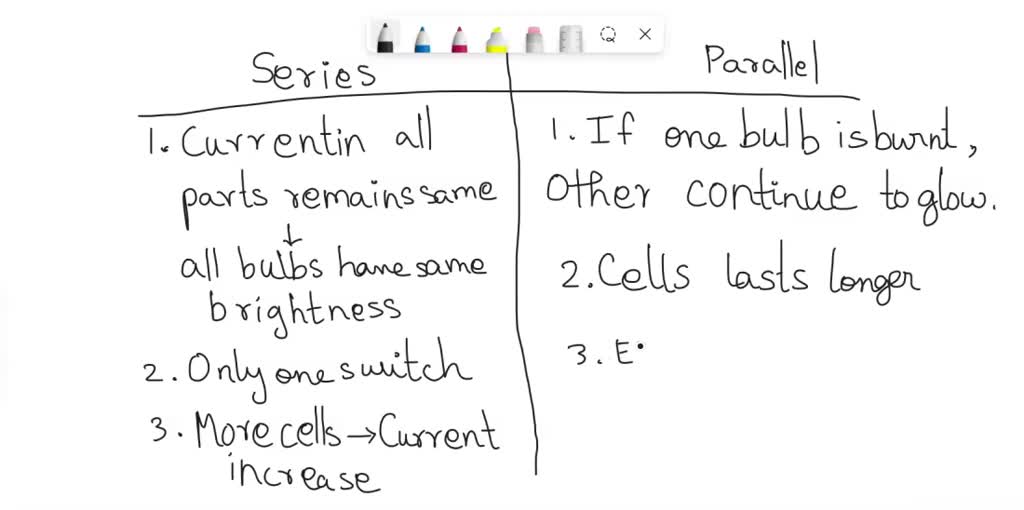 Series
1. Current in all
parts remains same
↓
all bulbs have same
brightness
2. Only one switch
3. More cells → Current
increase
Parallel
1. If one bulb is burnt,
Other continue to glow.
2. Cells lasts longer
3. E